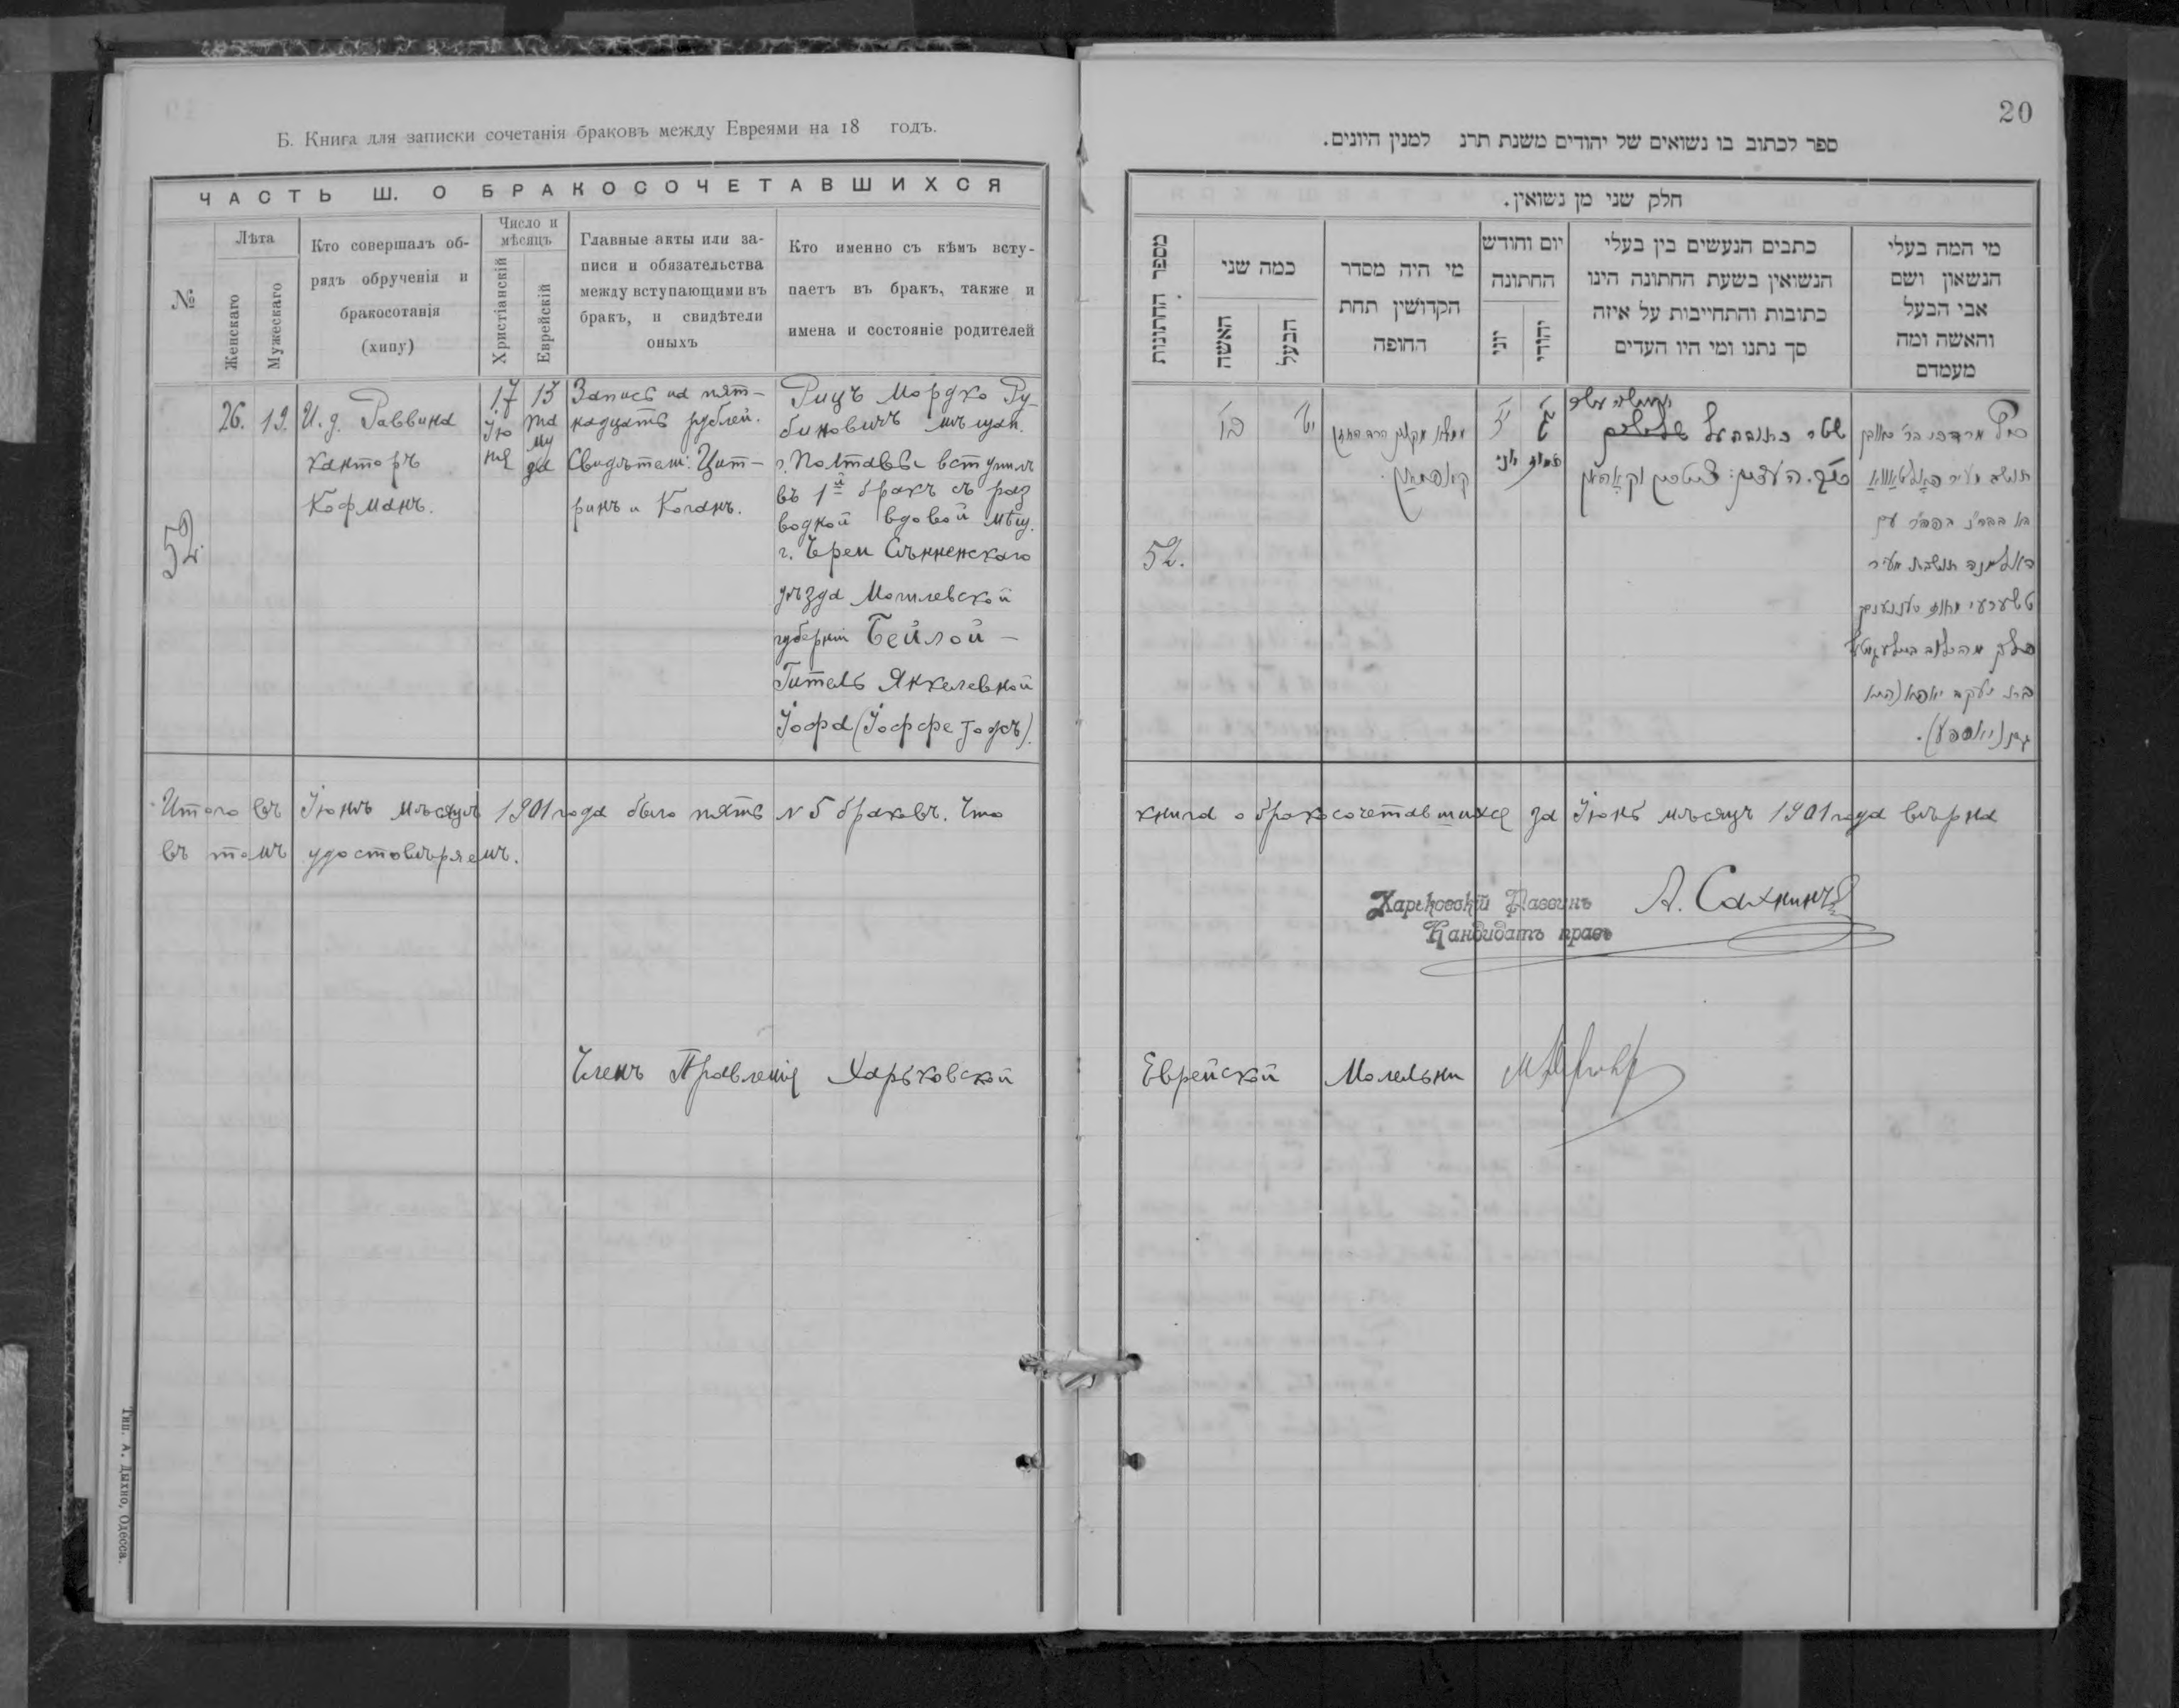 Б. Книга для записки сочетанія браковъ между Евреями на 18 годъ.
ЧАСТЬ Ш. О БРАКОСОЧЕТАВШИХСЯ
№
Лѣта
Женскаго
Мужескаго
Кто совершалъ об-
рядъ обрученія и
бракосотанія
(хипу)
Число и
мѣсяцъ
Христіанскій
Еврейскій
Главные акты или за-
писи и обязательства
между вступающими въ
бракъ, и свидѣтели
оныхъ
Кто именно съ кѣмъ всту-
паетъ въ бракъ, также и
имена и состояніе родителей
52.
26.
19.
И. д. Раввина
канторъ
Кофманъ.
17
Ію
ня
13
та
му
за
Запись на пят-
надцать рублей.
Свидѣтели: Цит-
ринъ и Коганъ.
Рицъ Мордко Ру-
биновичъ мѣщан.
г. Полтавы вступилъ
въ 1й бракъ съ раз
водкой вдовой мѣщ.
г. Череи Сѣнненскаго
уѣзда Могилевской
губерніи Бейлой -
Гитель Янкелевной
Іофа (Іоффе тожъ).
Итого въ Іюнѣ мѣсяцѣ 1901 года было пять № 5 браковъ. Что
въ томъ удостовѣряемъ.
Членъ Правленія Харьковской
Тип. А. Дыхно, Одесса.
20
ספר לכתוב בו נשואים של יהודים משנת תרנ למנין היונים.
חלק שני מן נשואין.
מספר החתונות
כמה שני
האשה
הבעל
מי היה מסדר
הקדושין תחת
החופה
יום וחודש
החתונה
יוני
יהודי
כתבים הנעשים בין בעלי
הנשואין בשעת החתונה הינו
כתובות והתחייבות על איזה
סך נתנו ומי היו העדים
מי המה בעלי
הנשאון ושם
אבי הבעל
והאשה ומה
מעמדם
52.
כו
יט
קאפמאן.
יז
יוני
יג
תמוז
שטר כתובה על
העדים: ציטרין וקאהאן
книга о бракосочетавшихся за Іюнь мѣсяцъ 1901 года вѣрна
Харьковскій Раввинъ А. Сахнинъ
Кандидатъ правъ
Еврейской Молельни